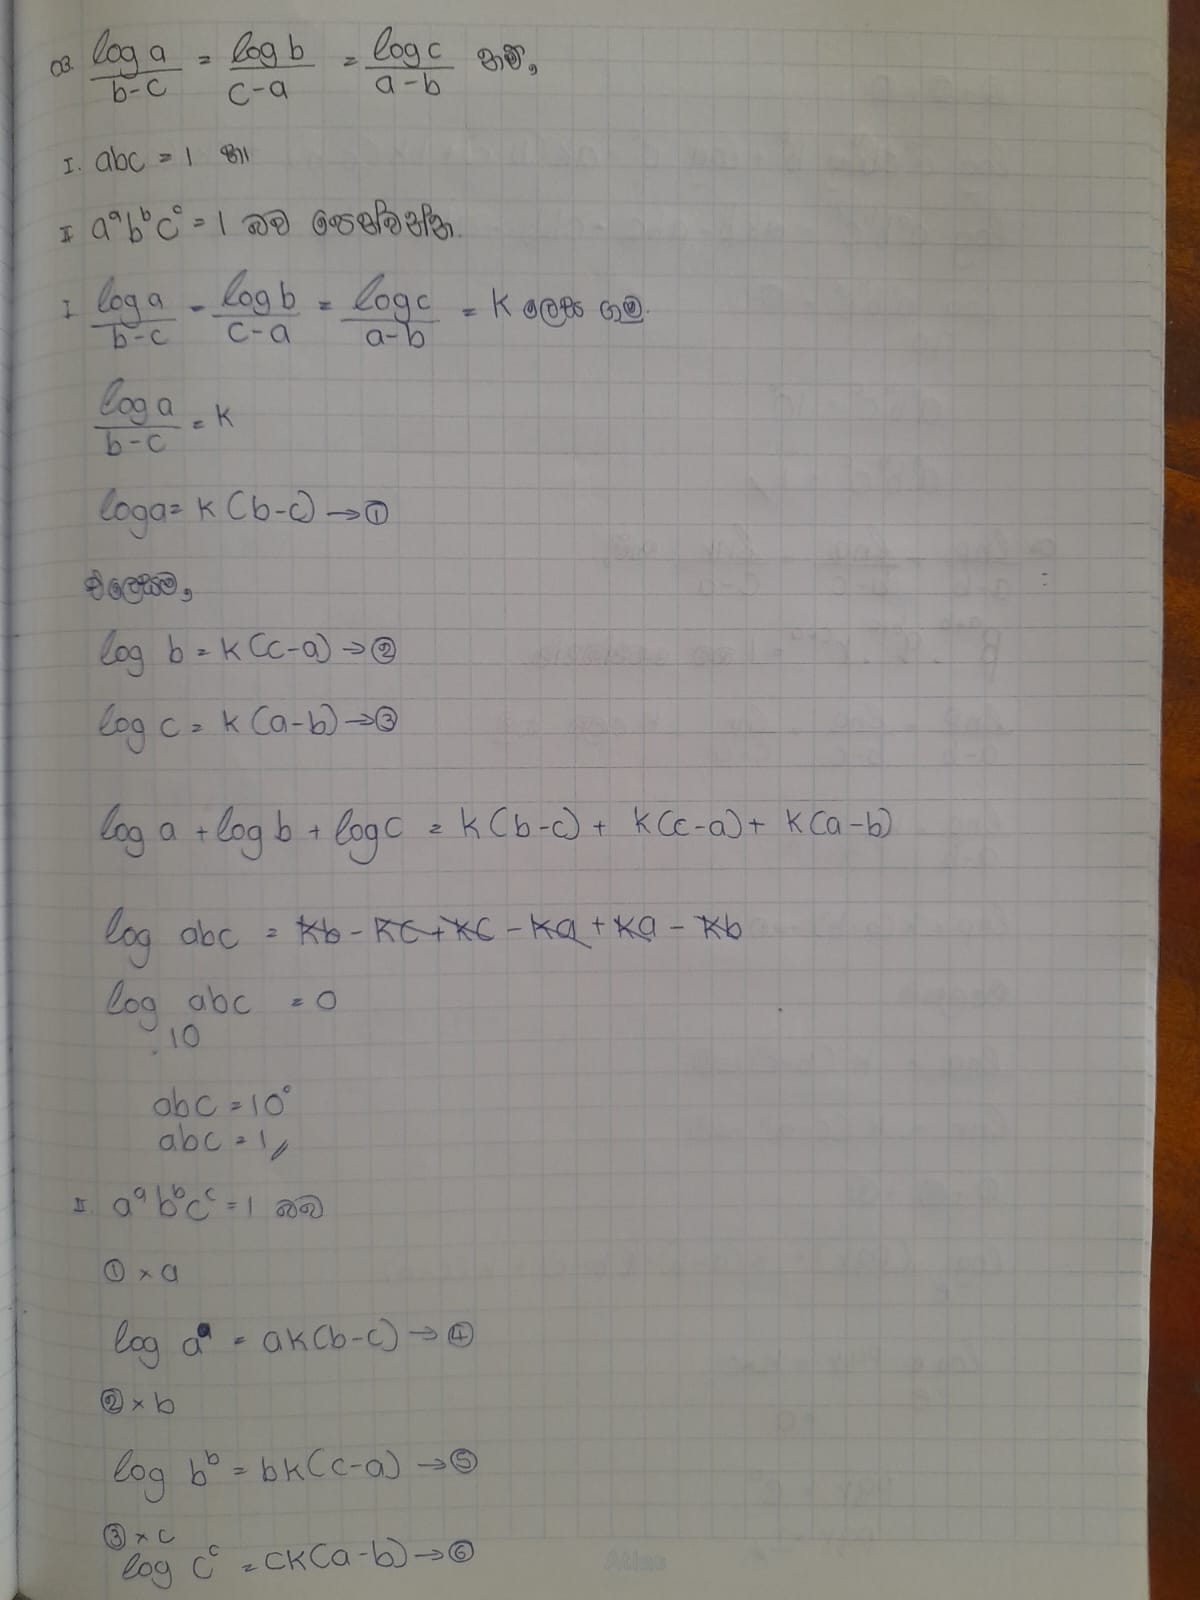 03. log a / b-c = log b / c-a = log c / a-b නම්,
I. abc = 1 හා
II a^a b^b c^c = 1 බව පෙන්වන්න.
I log a / b-c = log b / c-a = log c / a-b = K ලෙස ගමු.
log a / b-c = K
log a = K(b-c) → ①
එලෙසම,
log b = K(c-a) → ②
log c = K(a-b) → ③
log a + log b + log c = K(b-c) + K(c-a) + K(a-b)
log abc = Kb - Kc + Kc - Ka + Ka - Kb
log abc = 0
10
abc = 10°
abc = 1//
II. a^a b^b c^c = 1 බව
① × a
log a^a = aK(b-c) → ④
② × b
log b^b = bK(c-a) → ⑤
③ × c
log c^c = cK(a-b) → ⑥
Atlas